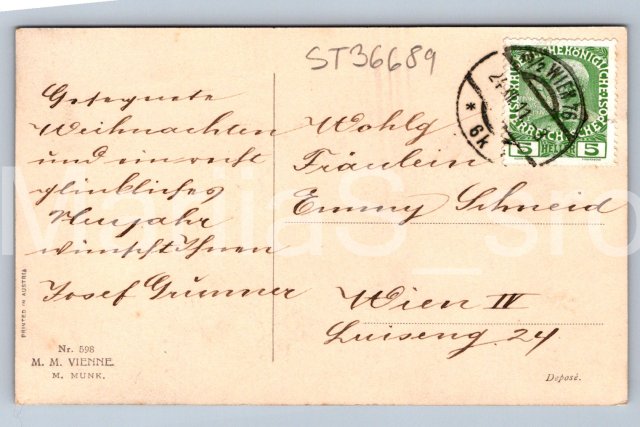 ST36689
Gesegnete
Weihnachten
und ein recht
glückliches
Neujahr
wünscht Ihnen
Josef Grunner
Wohlg
Fräulein
Emmy Schneid
Wien IV
Luiseng. 24
WIEN 76
6k
5 HELLER 5
PRINTED IN AUSTRIA
Nr. 598
M. M. VIENNE
M. MUNK.
Deposé.